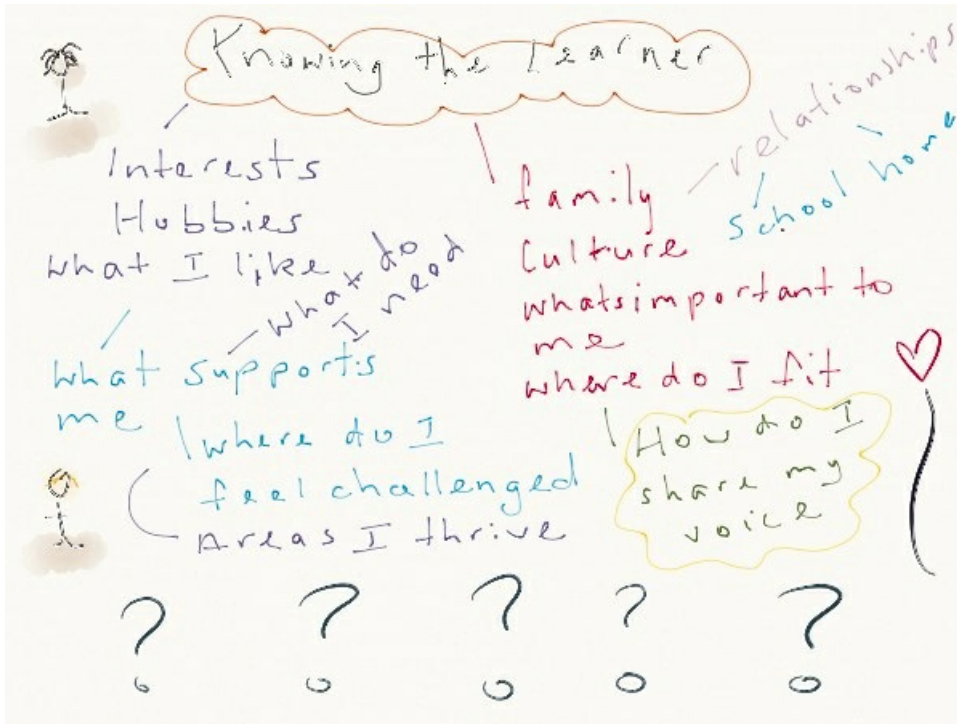 Knowing the Learner
Interests
Hobbies
what I like
what do
I need
what supports
me
where do I
feel challenged
Areas I thrive
family
Culture
whatsimportant to
me
where do I fit
relationships
School home
How do I
share my
voice
? ? ? ? ?